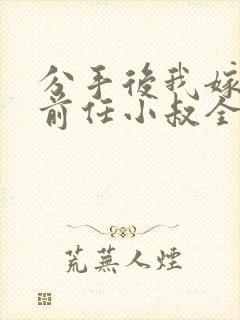 分手後我嫁
前任小叔全
荒蕪人煙